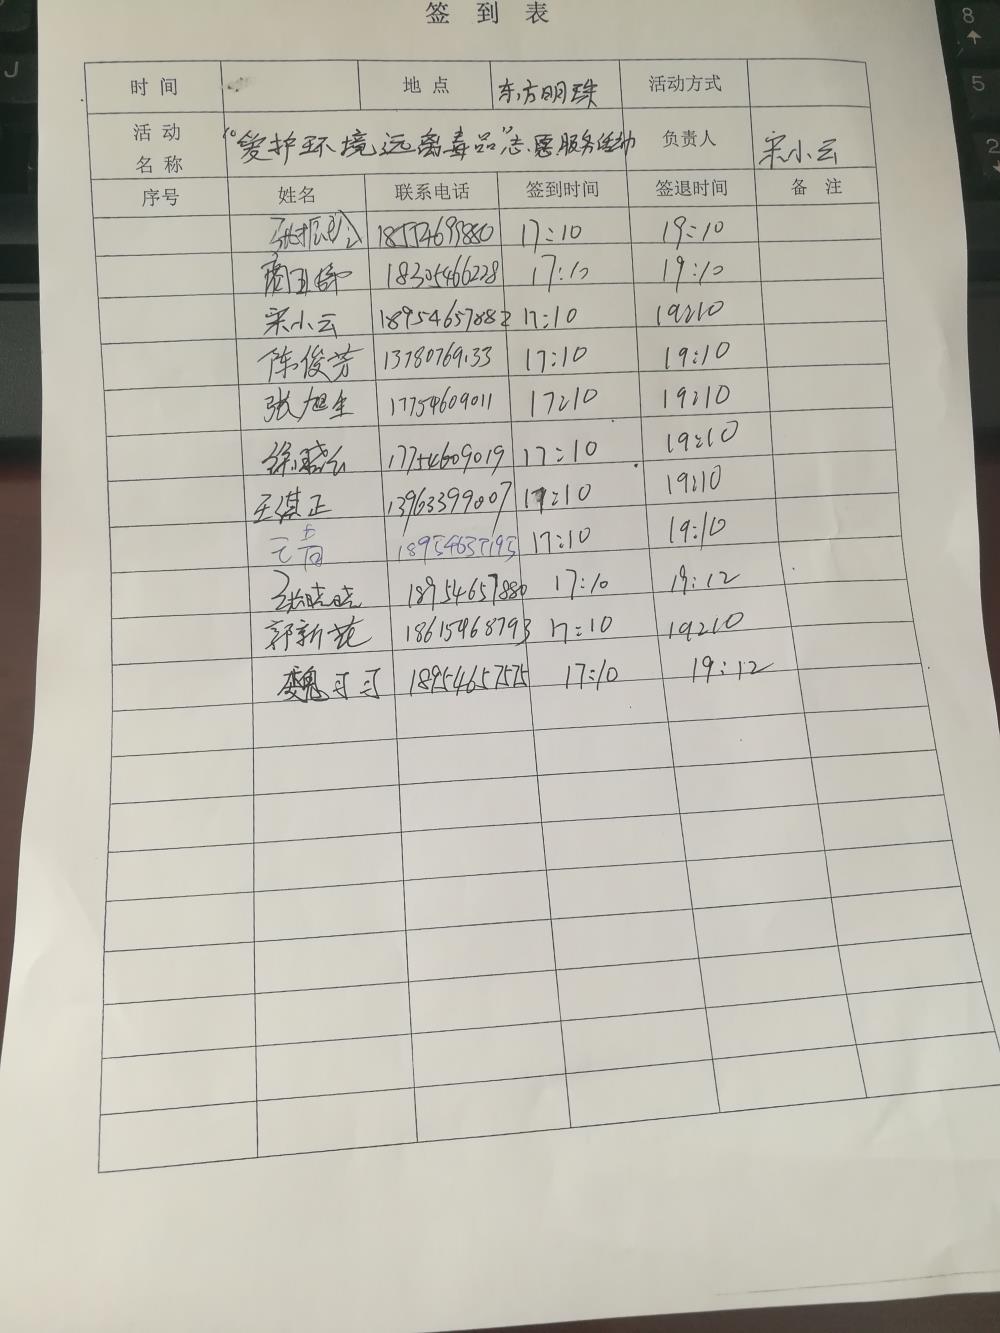 签 到 表
时 间 地 点 东方明珠 活动方式
活 动 名 称 “爱护环境远离毒品”志愿服务活动 负责人 宋小云
序号 姓名 联系电话 签到时间 签退时间 备 注
17:10 19:10
18305466228 17:10 19:10
宋小云 18954657882 17:10 19:10
陈俊芳 17:10 19:10
张旭生 17754609011 17:10 19:10
17754609019 17:10 19:10
王谋正 13963399007 17:10 19:10
17:10 19:10
张晓晓 18954657880 17:10 19:12
郭新苑 18615468793 17:10 19:10
魏可可 18954657575 17:10 19:12
J
8
5
2